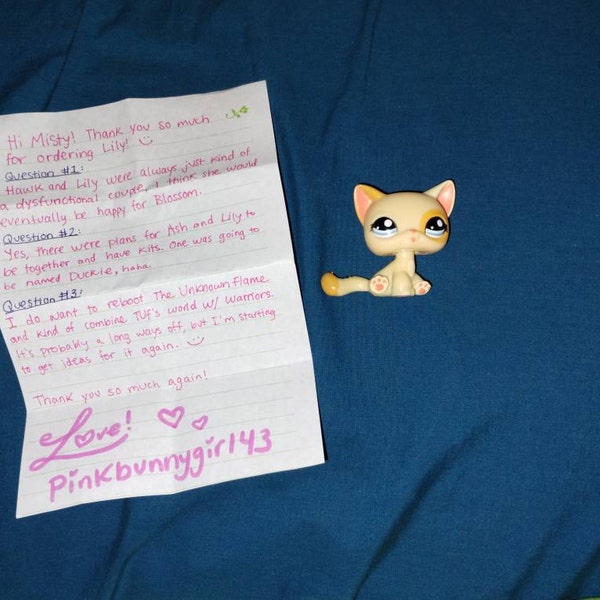 Hi Misty! Thank you so much
for ordering Lily! :)
Question #1:
Hawk and Lily were always just kind of
a dysfunctional couple, I think she would
eventually be happy for Blossom.
Question #2:
Yes, there were plans for Ash and Lily to
be together and have kits. One was going to
be named Duckie, haha.
Question #3:
I do want to reboot The Unknown Flame
and kind of combine TUF's world w/ Warriors.
It's probably a long ways off, but I'm starting
to get ideas for it again. :)
Thank you so much again!
Love!
Pinkbunnygirl43